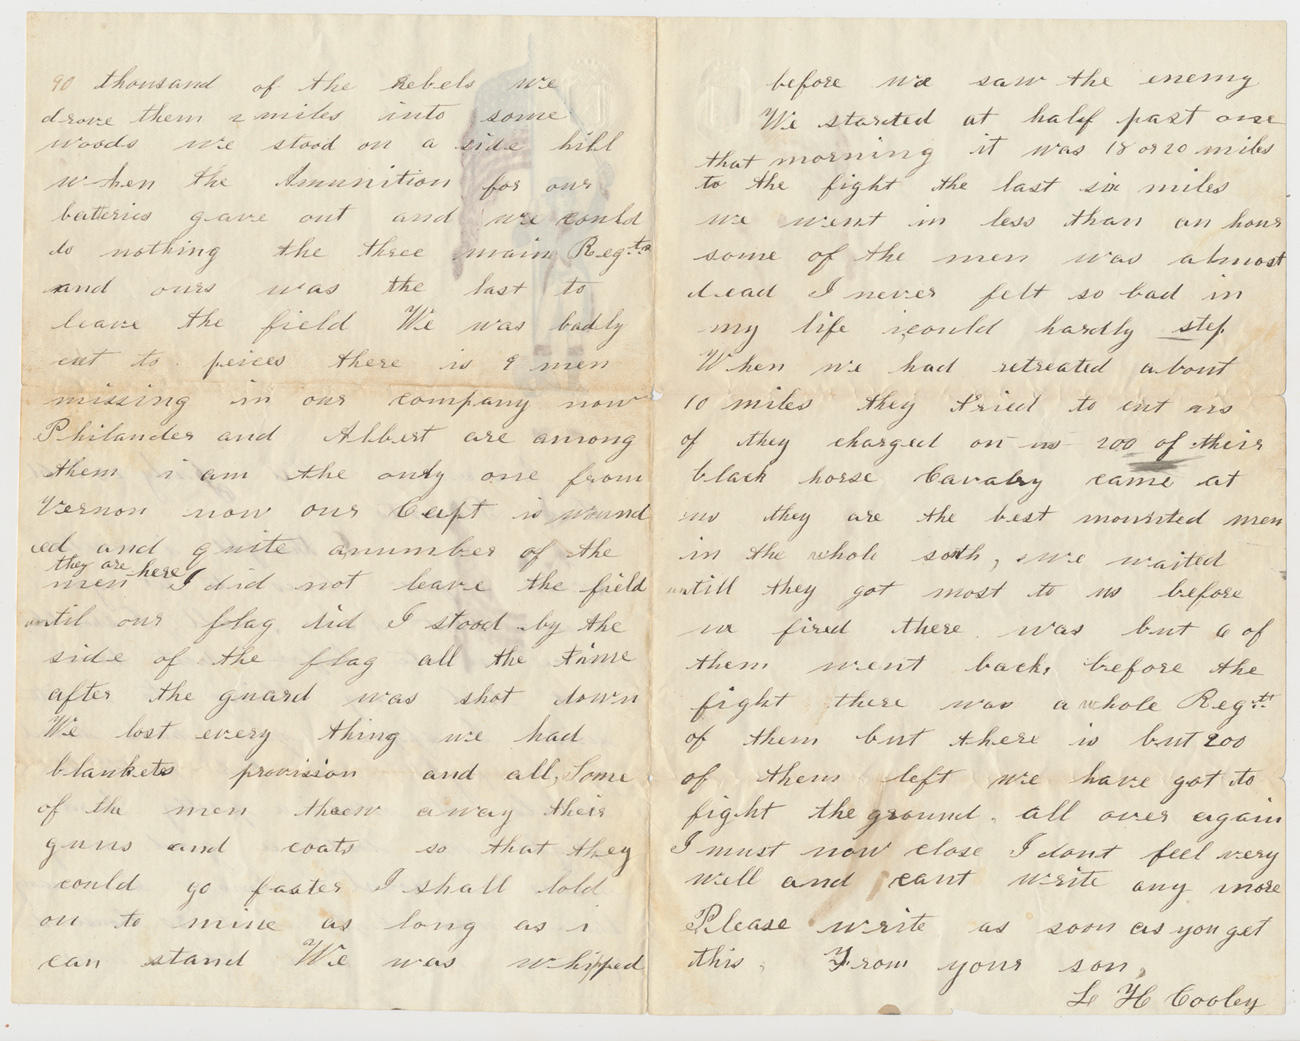 90 thousand of the Rebels we
drove them 2 miles into some
woods we stood on a side hill
when the Amunition for our
batteries gave out and we could
do nothing the three main Regts
and ours was the last to
leave the field We was badly
cut to peices there is 9 men
missing in our company now
Philander and Albert are among
them i am the only one from
Vernon now our Capt is wound
ed and quite anumber of the
they are here
men I did not leave the field
until our flag did I stood by the
side of the flag all the time
after the guard was shot down
We lost every thing we had
blankets provision and all, Some
of the men threw away their
guns and coats so that they
could go faster I shall hold
on to mine as long as i
can stand We was whipped
before we saw the enemy
We started at half past one
that morning it was 18 or 20 miles
to the fight the last six miles
we went in less than an hour
some of the men was almost
dead I never felt so bad in
my life i could hardly step
When we had retreated about
10 miles they tried to cut us
of they charged on us 200 of their
black horse Cavalry came at
us they are the best mounted men
in the whole south, we waited
untill they got most to us before
we fired there was but 6 of
them went back, before the
fight there was a whole Regt
of them but there is but 200
of them left we have got to
fight the ground all over again
I must now close I dont feel very
well and cant write any more
Please write as soon as you get
this. From your son,
L H Cooley